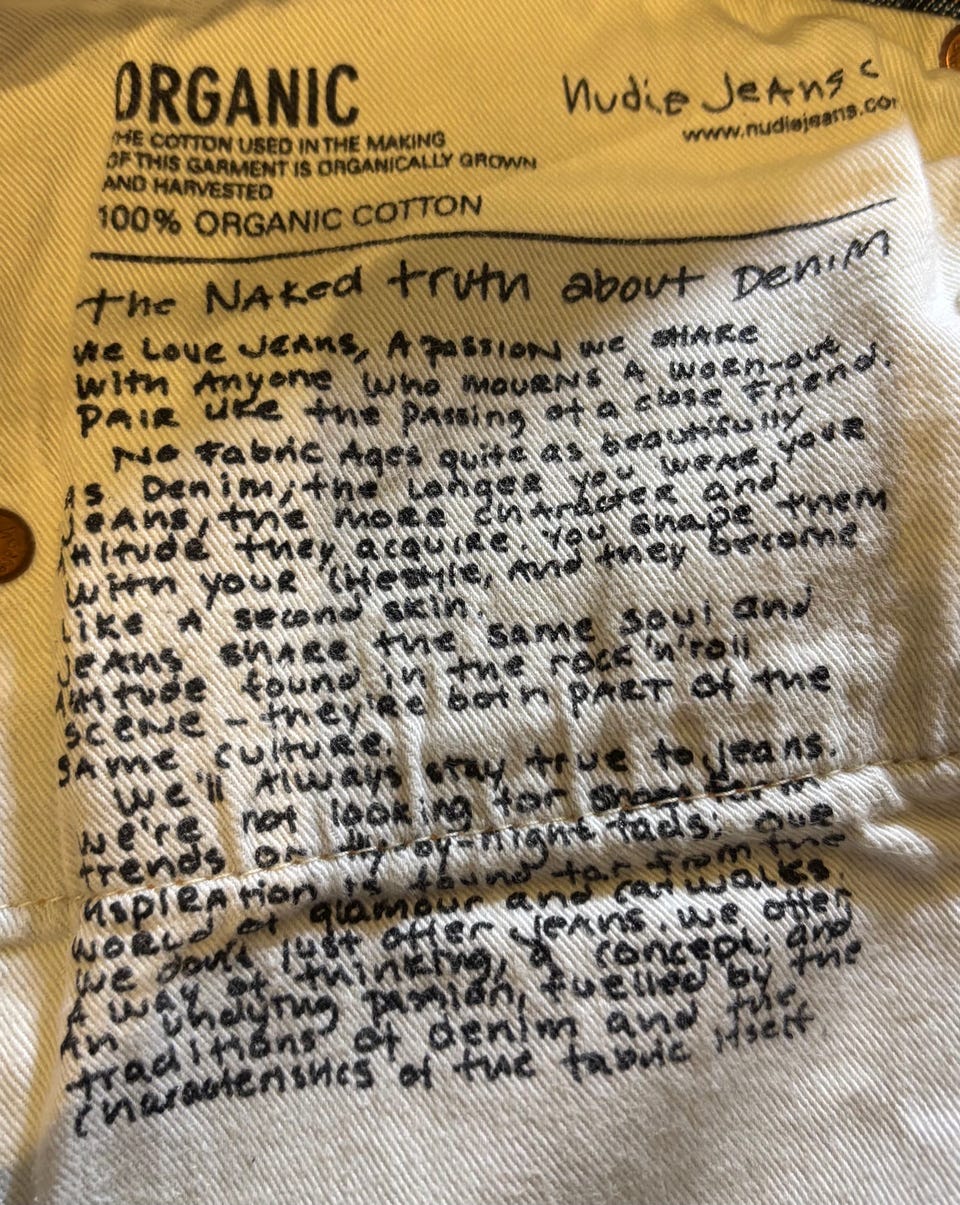 ORGANIC
THE COTTON USED IN THE MAKING
OF THIS GARMENT IS ORGANICALLY GROWN
AND HARVESTED
100% ORGANIC COTTON
Nudie Jeans c
www.nudiejeans.co
the Naked truth about Denim
We Love Jeans, A passion we share
with Anyone who mourns A worn-out
pair like the passing of a close friend.
No fabric Ages quite as beautifully
As Denim, the longer you wear your
Jeans, the more character and
attitude they acquire. You shape them
with your lifestyle, and they become
Like A second skin.
Jeans share the same soul and
attitude found in the rock 'n' roll
scene - they're both part of the
same culture.
We'll Always stay true to jeans.
we're not looking for short term
trends or fly-by-night fads; our
inspiration is found far from the
world of glamour and catwalks.
We don't just offer jeans. we offer
A way of thinking, a concept; and
An undying passion, fuelled by the
traditions of denim and the
characteristics of the fabric itself.